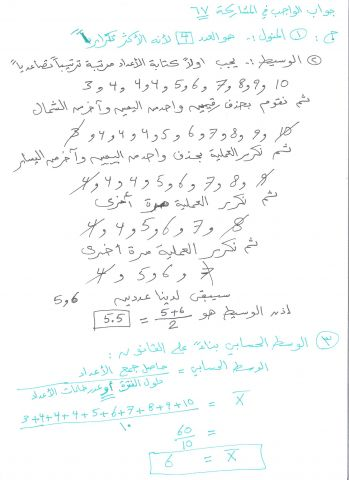 جواب الواجب في المشاركة ٦٧
ج: ① المنوال :- هو العدد 4 لأنه الأكثر تكراراً
② الوسيط :- يجب اولاً كتابة الأعداد مرتبة ترتيباً تصاعدياً
3 و 4 و 4 و 4 و 5 و 6 و 7 و 8 و 9 و 10
ثم نقوم بحذف واحد من اليمين وآخر من الشمال
3 و 4 و 4 و 4 و 5 و 6 و 7 و 8 و 9 و 10
ثم نكرر العملية بحذف واحد من اليمين وآخر من اليسار
4 و 4 و 4 و 5 و 6 و 7 و 8 و 9
ثم نكرر العملية مرة أخرى
4 و 4 و 5 و 6 و 7 و 8
ثم نكرر العملية مرة أخرى
4 و 5 و 6 و 7
سيبقى لدينا عددين 5 و 6
اذن الوسيط هو 5+6/2 = 5.5
③ الوسط الحسابي بناءً على القانون :
الوسط الحسابي = حاصل جمع الأعداد
أو عدد خانات الأعداد
X̄ = 3+4+4+4+5+6+7+8+9+10
١٠
= 60/10
X̄ = 6